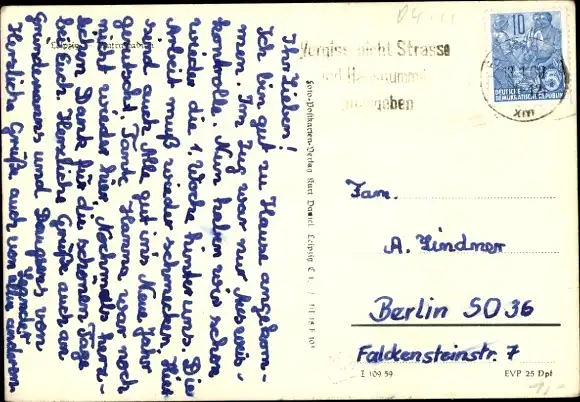 Ihr Lieben!
Ich bin gut zu Hause angekom-
men. Im Zug war nur Ausweis-
kontrolle. Nun haben wir schon
wieder die 1. Woche hinter uns. Die
Arbeit muß wieder schmecken. Hier
sind auch Alle gut ins Neue Jahr
gerutscht. Tante Hanna war noch
nicht wieder hier. Nochmals herz-
lichen Dank für die schönen Tage
bei Euch. Herzliche Grüße auch an
Grundemanns und Baugers von
Herzliche Grüße auch von allen anderen
Leipzig
Foto-Postkarten-Verlag Kurt Daniel Leipzig C 1
Vergiss nicht Strasse
und Hausnummer
anzugeben
10
DEUTSCHE
DEMOKRATISCHE REPUBLIK
5
xm
Fam.
A. Lindner
Berlin SO 36
Falckensteinstr. 7
Z 109 59
EVP 25 Dpf